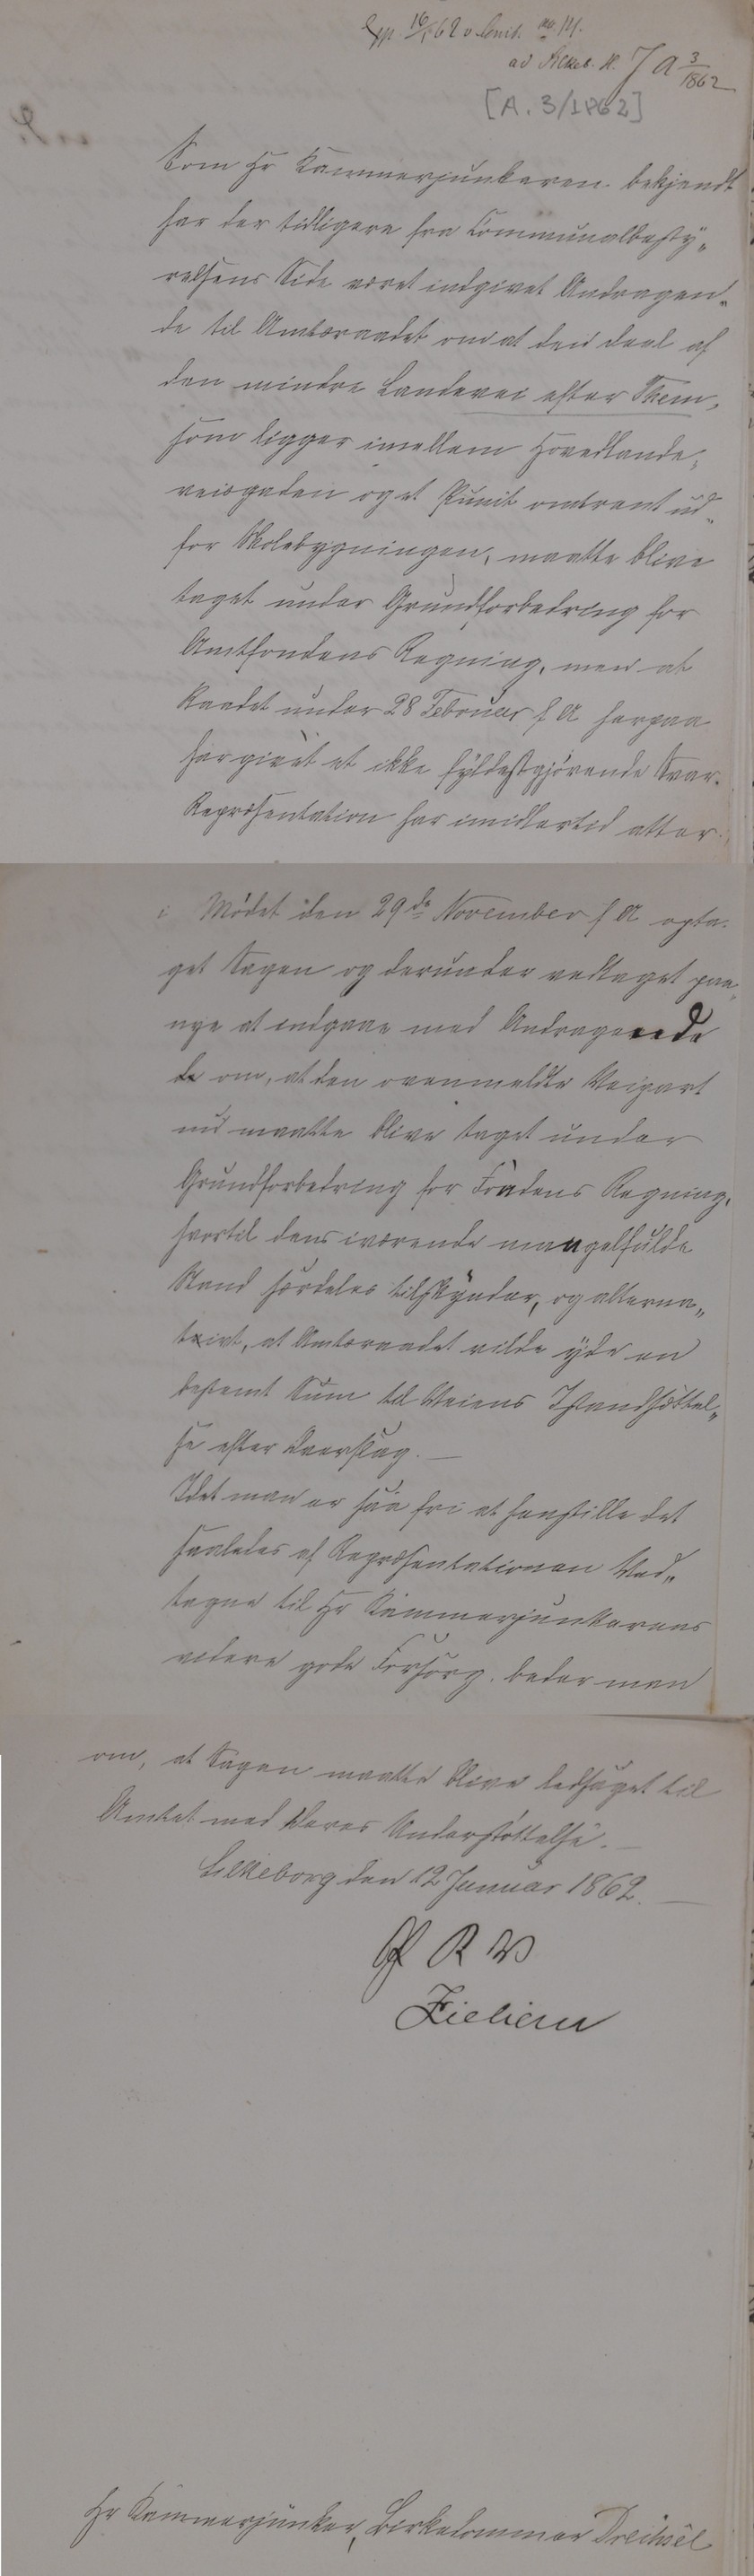 Exp. 16/1 62 v Cout. No. 14.
ad Silkeb. N. J A 3/1862
[A. 3/1862]
Som Hr Kammerjunkeren bekjendt
har der tidligere fra Communalbesty„
relsens Side været indgivet Andragen„
de til Amtsraadet om at den Deel af
den mindre Landevei efter Them,
som ligger imellem Hovedlande„
veisgaden og et Punct omtrent ud„
for Skolebygningen, maatte blive
taget under Grundforbedring for
Amtsfondens Regning, men at
Raadet under 28 Februar f A herpaa
har givet et ikke fyldestgjørende Svar.
Repræsentation har imidlertid atter
i Mødet den 29de November f A opta„
get Sagen og derunder vedtaget paa„
nye at indgaae med Andragende
de om, at den ovenmeldte Veipart
nu maatte blive taget under
Grundforbedring for Fondens Regning,
hvortil dens iværende mangelfulde
Stand særdeles tilskynder, og alterna„
tivt, at Amtsraadet vilde yde en
bestemt Sum til Veiens Istandsættel„
se efter Overslag. —
Idet man er saa fri at henstille det
saaledes af Repræsentationen Ved„
tagne til Hr Kammerjunkerens
videre gode Forsorg, beder man
om, at Sagen maatte blive ledsaget til
Amtet med Deres Understøttelse. —
Silkeborg den 12 Januar 1862. —
P R V
Zieliem
Hr Kammerjunker, Birkedommer Drechsel